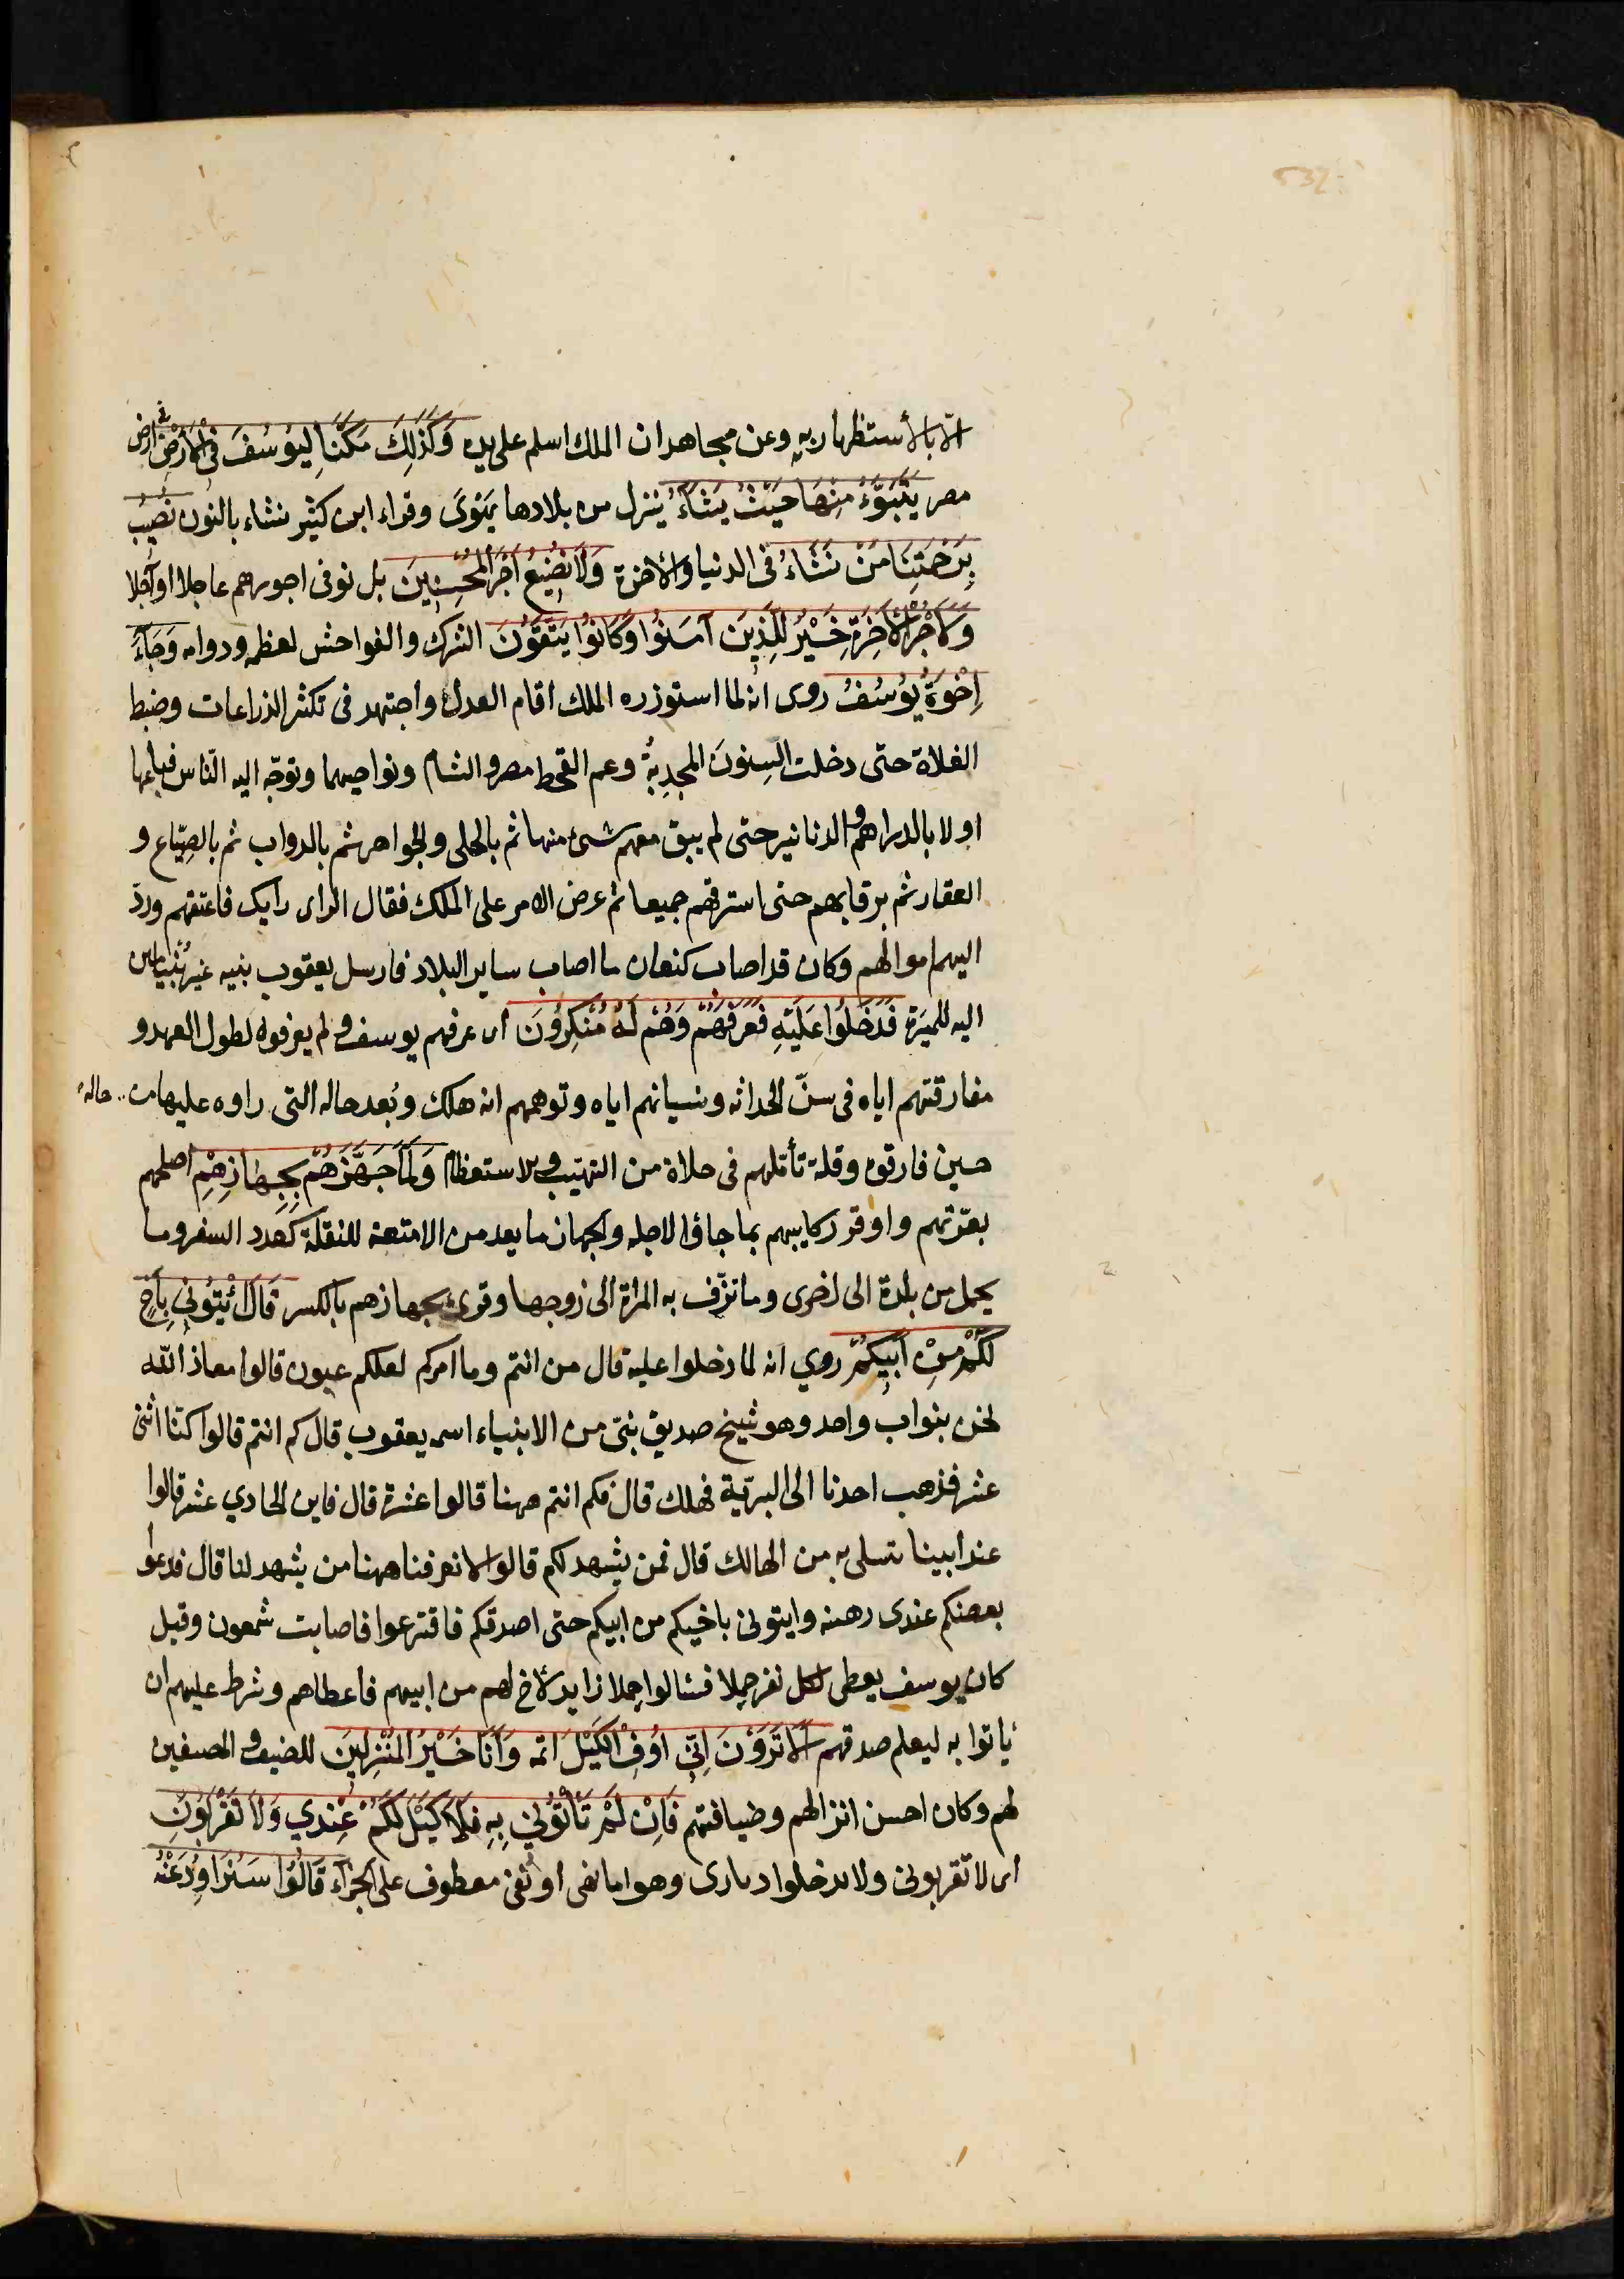 532
الا بالأستظهار به وعن مجاهد ان الملك اسلم على يده وَكَذَلِكَ مَكَّنَّا لِيُوسُفَ فِي الْاَرْضِ في ارض
مصر يَتَبَوَّءُ مِنْهَا حَيْثُ يَشَآءُ ينزل من بلادها يَهْوَى وقراء ابن كثير نشاء بالنون نُصِيبُ
بِرَحْمَتِنَا مَنْ نَشَاءُ فى الدنيا والأخرة وَلَا نُضِيعُ اَجْرَ الْمُحْسِنِينَ بل نوفى اجورهم عاجلا او آجلا
وَلَاَجْرُ الْاٰخِرَةِ خَيْرٌ لِلَّذِينَ آمَنُوا وَكَانُوا يَتَّقُونَ الشرك والفواحش لعظمه ودوامه وَجَآءَ
اِخْوَةُ يُوسُفَ روى انه لما استوزره الملك اقام العدل واجتهد فى تكثير الزراعات وضبط
الغلاة حتى دخلت السِنونَ المجدِبةُ وعم القحط مصر والشام ونواحيهما وتوجّه اليه النّاس فباعها
اولا بالدراهم والدنانير حتى لم يبق معهم شىء منها ثم بالحلى والجواهر ثم بالدواب ثم بالضِيّاع و
العقار ثم برقابهم حتى استرقهم جميعا ثم عرض الامر على الملك فقال الراى رايك فاعتقهم وردّ
اليهم اموالهم وكان قد اصاب كنعان ما اصاب ساير البلاد فارسل يعقوب بنيه غير بُنيامين
اليه للميَرة فَدَخَلُوا عَلَيْهِ فَعَرَفَهُمْ وَهُمْ لَهُ مُنْكِرُونَ اى عرفهم يوسف ولم يعرفوه لطول العهد و
مفارقتهم اياه فى سنّ الحداثه ونسيانهم اياه وتوهمهم انه هلك وبُعد حاله التى راوه عليها من حاله
حين فارقوه وقلة تأملهم فى حلاه من التهيّب والاستعظام وَلَمَّا جَهَّزَهُمْ بِجِهَازِهِمْ اصلحهم
بعدّتهم واوقر ركايبهم بما جاؤا لاجله والجهاز ما يعد من الامتعة للنقلة كعدد السفر وما
يحمل من بلدة الى اخرى وما تزّف به المراة الى زوجها وقرى بجهازهم بالكسر قَالَ ائْتُونِي بِاَخٍ
لَكُمْ مِنْ اَبِيكُمْ روي انه لما دخلوا عليه قال من انتم وما امركم لعلكم عيون قالوا معاذ الله
نحن بنواب واحد وهو شيخ صديق نبىّ من الانبياء اسمه يعقوب قال كم انتم قالوا كنّا اثنى
عشر فذهب احدنا الى البريّة فهلك قال فكم انتم ههنا قالوا عشرة قال فاين الحادي عشر قالوا
عند ابينا يتسلى به من الهالك قال فمن يشهد لكم قالوا لا نعرفنا ههنا من يشهد لنا قال فدعوا
بعضكم عندى رهنه وايتونى باخيكم من ابيكم حتى اصدقكم فاقترعوا فاصابت شمعون وقيل
كان يوسف يعطى لكل نفر حِملا فسالوا حِملا زايد لأخ لهم من ابيهم فاعطاهم وشرط عليهم ان
ياتوا به ليعلم صدقهم اَلَا تَرَوْنَ اَنِّي اُوفِ الْكَيْلَ اتمه وَاَنَا خَيْرُ الْمُنْزِلِينَ للضيف والمضيفين
لهم وكان احسن انزالهم وضيافتهم فَاِنْ لَمْ تَأْتُونِي بِهِ فَلَا كَيْلَ لَكُمْ عِنْدِي وَلَا تَقْرَبُونِ
اى لا تقربونى ولا تدخلوا ديارى وهو اما نهى او نفى معطوف على الجزآء قَالُوا سَنُرَاوِدُ عَنْهُ